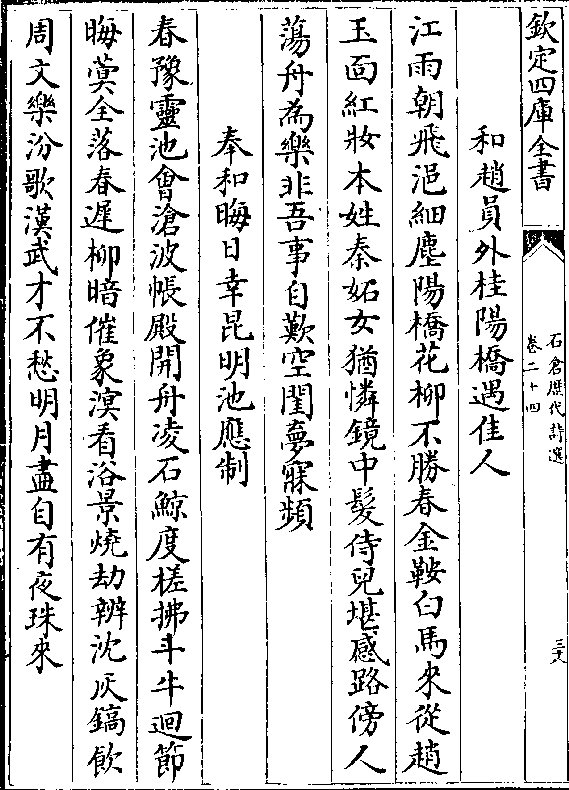 欽定四庫全書
石倉歷代詩選
卷二十四
和趙員外桂陽橋遇佳人
江雨朝飛浥細塵陽橋花柳不勝春金鞍白馬來從趙
玉面紅妝本姓秦妬女猶憐鏡中髮侍兒堪感路傍人
蕩舟為樂非吾事自歎空閨夢寐頻
奉和晦日幸昆明池應制
春豫靈池會滄波帳殿開舟凌石鯨度槎拂斗牛迴節
晦蓂全落春遲柳暗催象溟看浴景燒劫辨沈灰鎬飲
周文樂汾歌漢武才不愁明月盡自有夜珠來